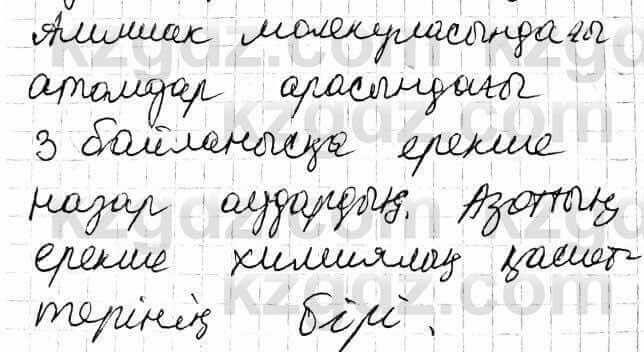 Аммиак молекуласындағы
атомдар арасындағы
3 байланысқа ерекше
назар аудардың. Азоттың
ерекше химиялық қасиет-
терінің бірі.